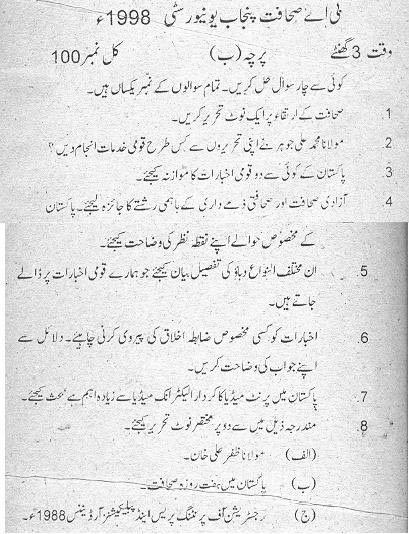 بی اے صحافت پنجاب یونیورسٹی 1998ء
وقت 3 گھنٹے پرچہ (ب) کل نمبر 100
کوئی سے چار سوال حل کریں۔ تمام سوالوں کے نمبر یکساں ہیں۔
1. صحافت کے ارتقاء پر ایک نوٹ تحریر کریں۔
2. مولانا محمد علی جوہر نے اپنی تحریروں سے کس طرح قومی خدمات انجام دیں؟
3. پاکستان کے کوئی سے دو قومی اخبارات کا موازنہ کیجئے۔
4. آزادی صحافت اور صحافتی ذمے داری کے باہمی رشتے کا جائزہ لیجئے۔ پاکستان
کے مخصوص حوالے اپنے نقطہ نظر کی وضاحت کیجئے۔
5. ان مختلف النواع دباؤ کی تفصیل بیان کیجئے جو ہمارے قومی اخبارات پر ڈالے
جاتے ہیں۔
6. اخبارات کو کسی مخصوص ضابطہ اخلاق کی پیروی کرنی چاہئے۔ دلائل سے
اپنے جواب کی وضاحت کریں۔
7. پاکستان میں پرنٹ میڈیا کا کردار الیکٹرانک میڈیا سے زیادہ اہم ہے بحث کیجئے۔
8. مندرجہ ذیل میں سے دو پر مختصر نوٹ تحریر کیجئے۔
(الف) مولانا ظفر علی خان۔
(ب) پاکستان میں ہفت روزہ صحافت۔
(ج) رجسٹریشن آف پرنٹنگ پریس اینڈ پبلیکیشنز آرڈیننس 1988ء۔